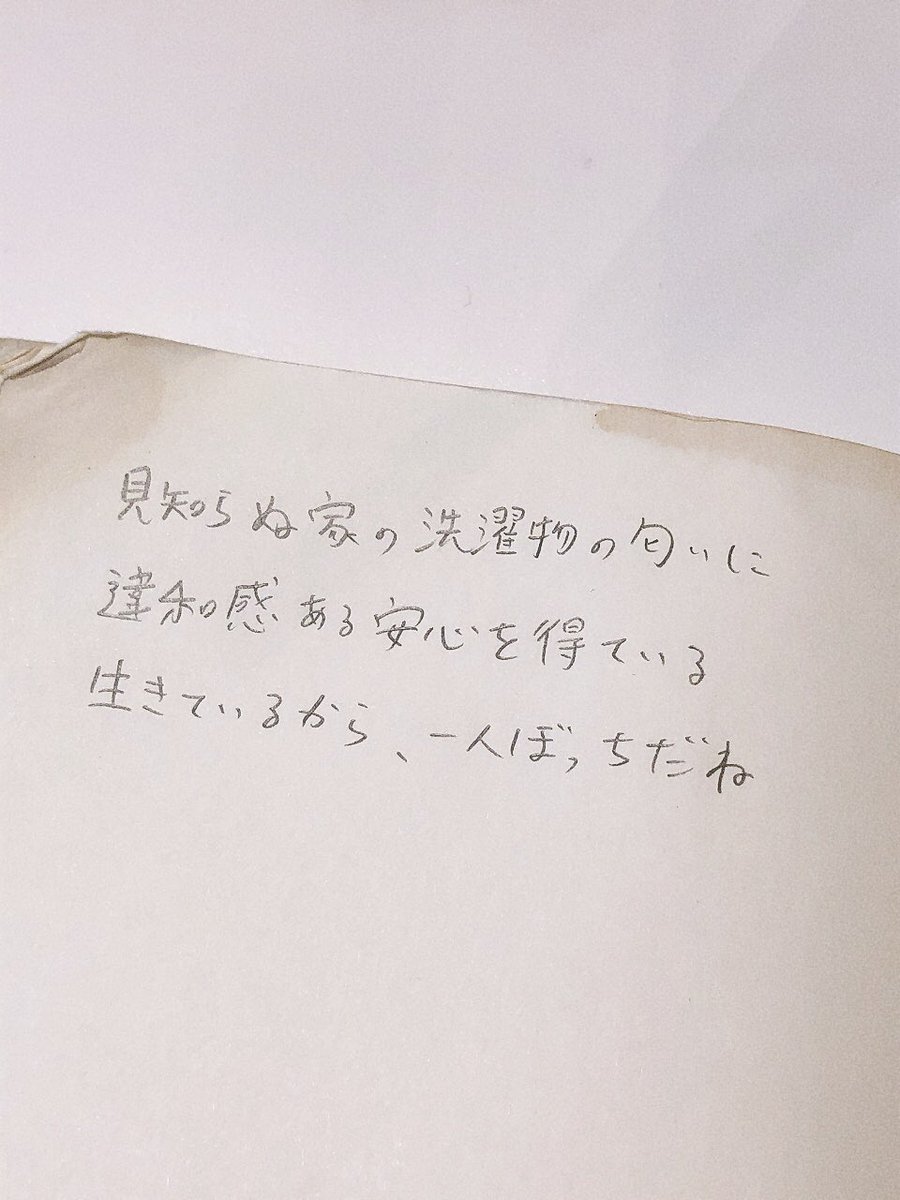 見知らぬ家の洗濯物の匂いに
違和感ある安心を得ている
生きているから、一人ぼっちだね